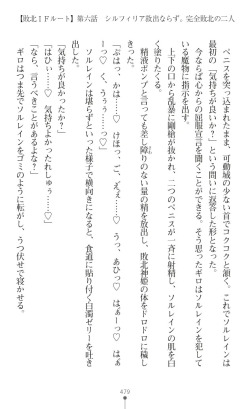 【敗北IFルート】第六話　シルフィリア救出ならず。完全敗北の二人
ペニスを突っ込まれたまま、可動域の少ない首でコクコクと頷く。それでソルレインは
最初の「気持ちが良いかな？」という問いに返答した形となる。
今度こそ心からの屈服宣言を聞くことができる。そう思ったギロはソルレインを犯して
いる魔物に指示を出す。
上下の口から乱暴に剛槍が抜かれ、二つのペニスが一斉に射精し、ソルレインの肌を白
く塗りたくる。
精液ポンプと言っても差し障りのない量の精を放出し、敗北神姫の体をドロドロに穢し
「ぷはっ、かはっ…♡　けほっ…、ごえぇ……♡　うっ、あひっ♡　はぁーっ♡　はぁ
ーっ♡　く、うぅ……♡」
ソルレインは堪らずといった様子で横向きになると、食道に貼り付く白濁ゼリーを吐き
「気持ちが良かったか？」
「は……いっ…♡　気持ちよかったれしゅ……♡」
「なら、言うべきことがあるよな？」
ギロはつまらなそうにソルレインをゴミのように転がし、うつ伏せで寝かせる。
479